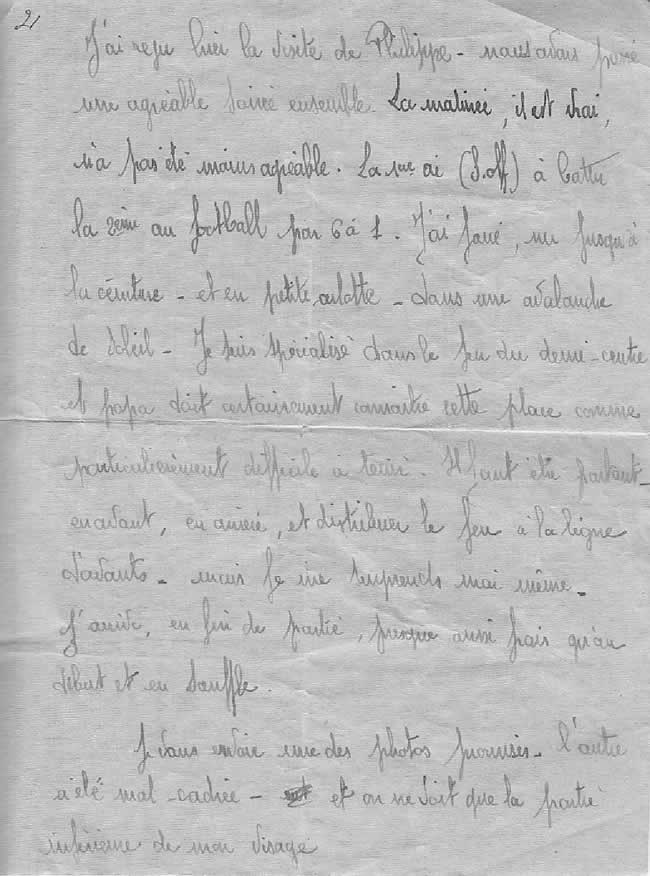 21
J'ai reçu hier la visite de Philippe - nous avons passé
une agréable soirée ensemble. La matinée, il est vrai,
n'a pas été moins agréable. La 1ère (S.off) à battu
la 2ème au football par 6 à 1. J'ai joué, nu jusqu'à
la ceinture - et en petite culotte - dans une avalanche
de soleil - Je suis spécialisé dans le jeu du demi-centre
et papa doit certainement connaitre cette place comme
particulièrement difficile à tenir. Il faut être partout -
en avant, en arrière, et distribuer le jeu à la ligne
d'avants - mais je me surprends moi même -
J'arrive, en fin de partie, presque aussi frais qu'au
début et en souffle.
Je vous envoie une des photos promises - l'autre
a été mal cadrée - et on ne voit que la partie
inférieure de mon visage